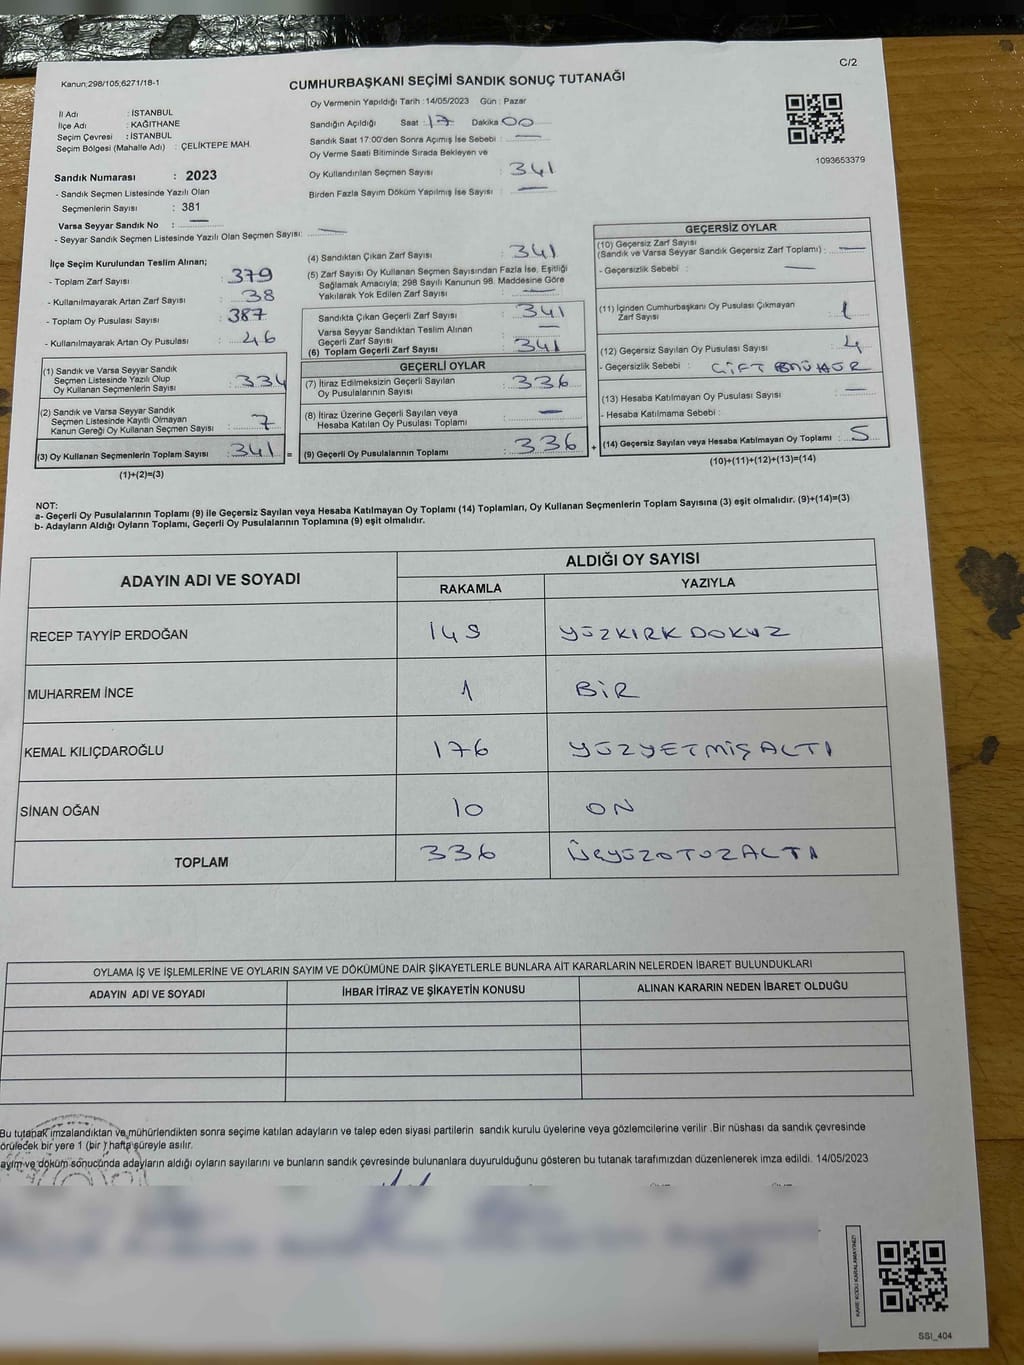 Kanun;298/105,6271/18-1
CUMHURBAŞKANI SEÇİMİ SANDIK SONUÇ TUTANAĞI
C/2
İl Adı : İSTANBUL
İlçe Adı : KAĞITHANE
Seçim Çevresi : İSTANBUL
Seçim Bölgesi (Mahalle Adı) : ÇELİKTEPE MAH.
Sandık Numarası : 2023
- Sandık Seçmen Listesinde Yazılı Olan
Seçmenlerin Sayısı : 381
Varsa Seyyar Sandık No : —
- Seyyar Sandık Seçmen Listesinde Yazılı Olan Seçmen Sayısı: —
Oy Vermenin Yapıldığı Tarih : 14/05/2023 Gün : Pazar
Sandığın Açıldığı Saat : 17 Dakika 00
Sandık Saat 17:00'den Sonra Açımış İse Sebebi : —
Oy Verme Saati Bitiminde Sırada Bekleyen ve
Oy Kullandırılan Seçmen Sayısı : 341
Birden Fazla Sayım Döküm Yapılmış İse Sayısı : —
1093653379
İlçe Seçim Kurulundan Teslim Alınan;
- Toplam Zarf Sayısı : 379
- Kullanılmayarak Artan Zarf Sayısı : 38
- Toplam Oy Pusulası Sayısı : 387
- Kullanılmayarak Artan Oy Pusulası : 46
(1) Sandık ve Varsa Seyyar Sandık
Seçmen Listesinde Yazılı Olup
Oy Kullanan Seçmenlerin Sayısı : 334
(2) Sandık ve Varsa Seyyar Sandık
Seçmen Listesinde Kayıtlı Olmayan
Kanun Gereği Oy Kullanan Seçmen Sayısı : 7
(3) Oy Kullanan Seçmenlerin Toplam Sayısı : 341 =
(1)+(2)=(3)
(4) Sandıktan Çıkan Zarf Sayısı : 341
(5) Zarf Sayısı Oy Kullanan Seçmen Sayısından Fazla İse, Eşitliği
Sağlamak Amacıyla; 298 Sayılı Kanunun 98. Maddesine Göre
Yakılarak Yok Edilen Zarf Sayısı : —
Sandıkta Çıkan Geçerli Zarf Sayısı : 341
Varsa Seyyar Sandıktan Teslim Alınan
Geçerli Zarf Sayısı : —
(6) Toplam Geçerli Zarf Sayısı : 341
GEÇERLİ OYLAR
(7) İtiraz Edilmeksizin Geçerli Sayılan
Oy Pusulalarının Sayısı : 336
(8) İtiraz Üzerine Geçerli Sayılan veya
Hesaba Katılan Oy Pusulası Toplamı : —
(9) Geçerli Oy Pusulalarının Toplamı : 336 +
GEÇERSİZ OYLAR
(10) Geçersiz Zarf Sayısı
(Sandık ve Varsa Seyyar Sandık Geçersiz Zarf Toplamı) : —
- Geçersizlik Sebebi : —
(11) İçinden Cumhurbaşkanı Oy Pusulası Çıkmayan
Zarf Sayısı : 1
(12) Geçersiz Sayılan Oy Pusulası Sayısı : 4
- Geçersizlik Sebebi : ÇİFT MÜHÜR
(13) Hesaba Katılmayan Oy Pusulası Sayısı : —
- Hesaba Katılmama Sebebi :
(14) Geçersiz Sayılan veya Hesaba Katılmayan Oy Toplamı : 5
(10)+(11)+(12)+(13)=(14)
NOT:
a- Geçerli Oy Pusulalarının Toplamı (9) ile Geçersiz Sayılan veya Hesaba Katılmayan Oy Toplamı (14) Toplamları, Oy Kullanan Seçmenlerin Toplam Sayısına (3) eşit olmalıdır. (9)+(14)=(3)
b- Adayların Aldığı Oyların Toplamı, Geçerli Oy Pusulalarının Toplamına (9) eşit olmalıdır.
ADAYIN ADI VE SOYADI
ALDIĞI OY SAYISI
RAKAMLA YAZIYLA
RECEP TAYYİP ERDOĞAN 149 YÜZKIRK DOKUZ
MUHARREM İNCE 1 BİR
KEMAL KILIÇDAROĞLU 176 YÜZYETMİŞALTI
SİNAN OĞAN 10 ON
TOPLAM 336 ÜÇYÜZOTUZALTI
OYLAMA İŞ VE İŞLEMLERİNE VE OYLARIN SAYIM VE DÖKÜMÜNE DAİR ŞİKAYETLERLE BUNLARA AİT KARARLARIN NELERDEN İBARET BULUNDUKLARI
ADAYIN ADI VE SOYADI İHBAR İTİRAZ VE ŞİKAYETİN KONUSU ALINAN KARARIN NEDEN İBARET OLDUĞU
Bu tutanak imzalandıktan ve mühürlendikten sonra seçime katılan adayların ve talep eden siyasi partilerin sandık kurulu üyelerine veya gözlemcilerine verilir .Bir nüshası da sandık çevresinde
örülecek bir yere 1 (bir ) hafta süreyle asılır.
ayım ve döküm sonucunda adayların aldığı oyların sayılarını ve bunların sandık çevresinde bulunanlara duyurulduğunu gösteren bu tutanak tarafımızdan düzenlenerek imza edildi. 14/05/2023
KARE KODU KARALAMAYINIZ!
SSI_404